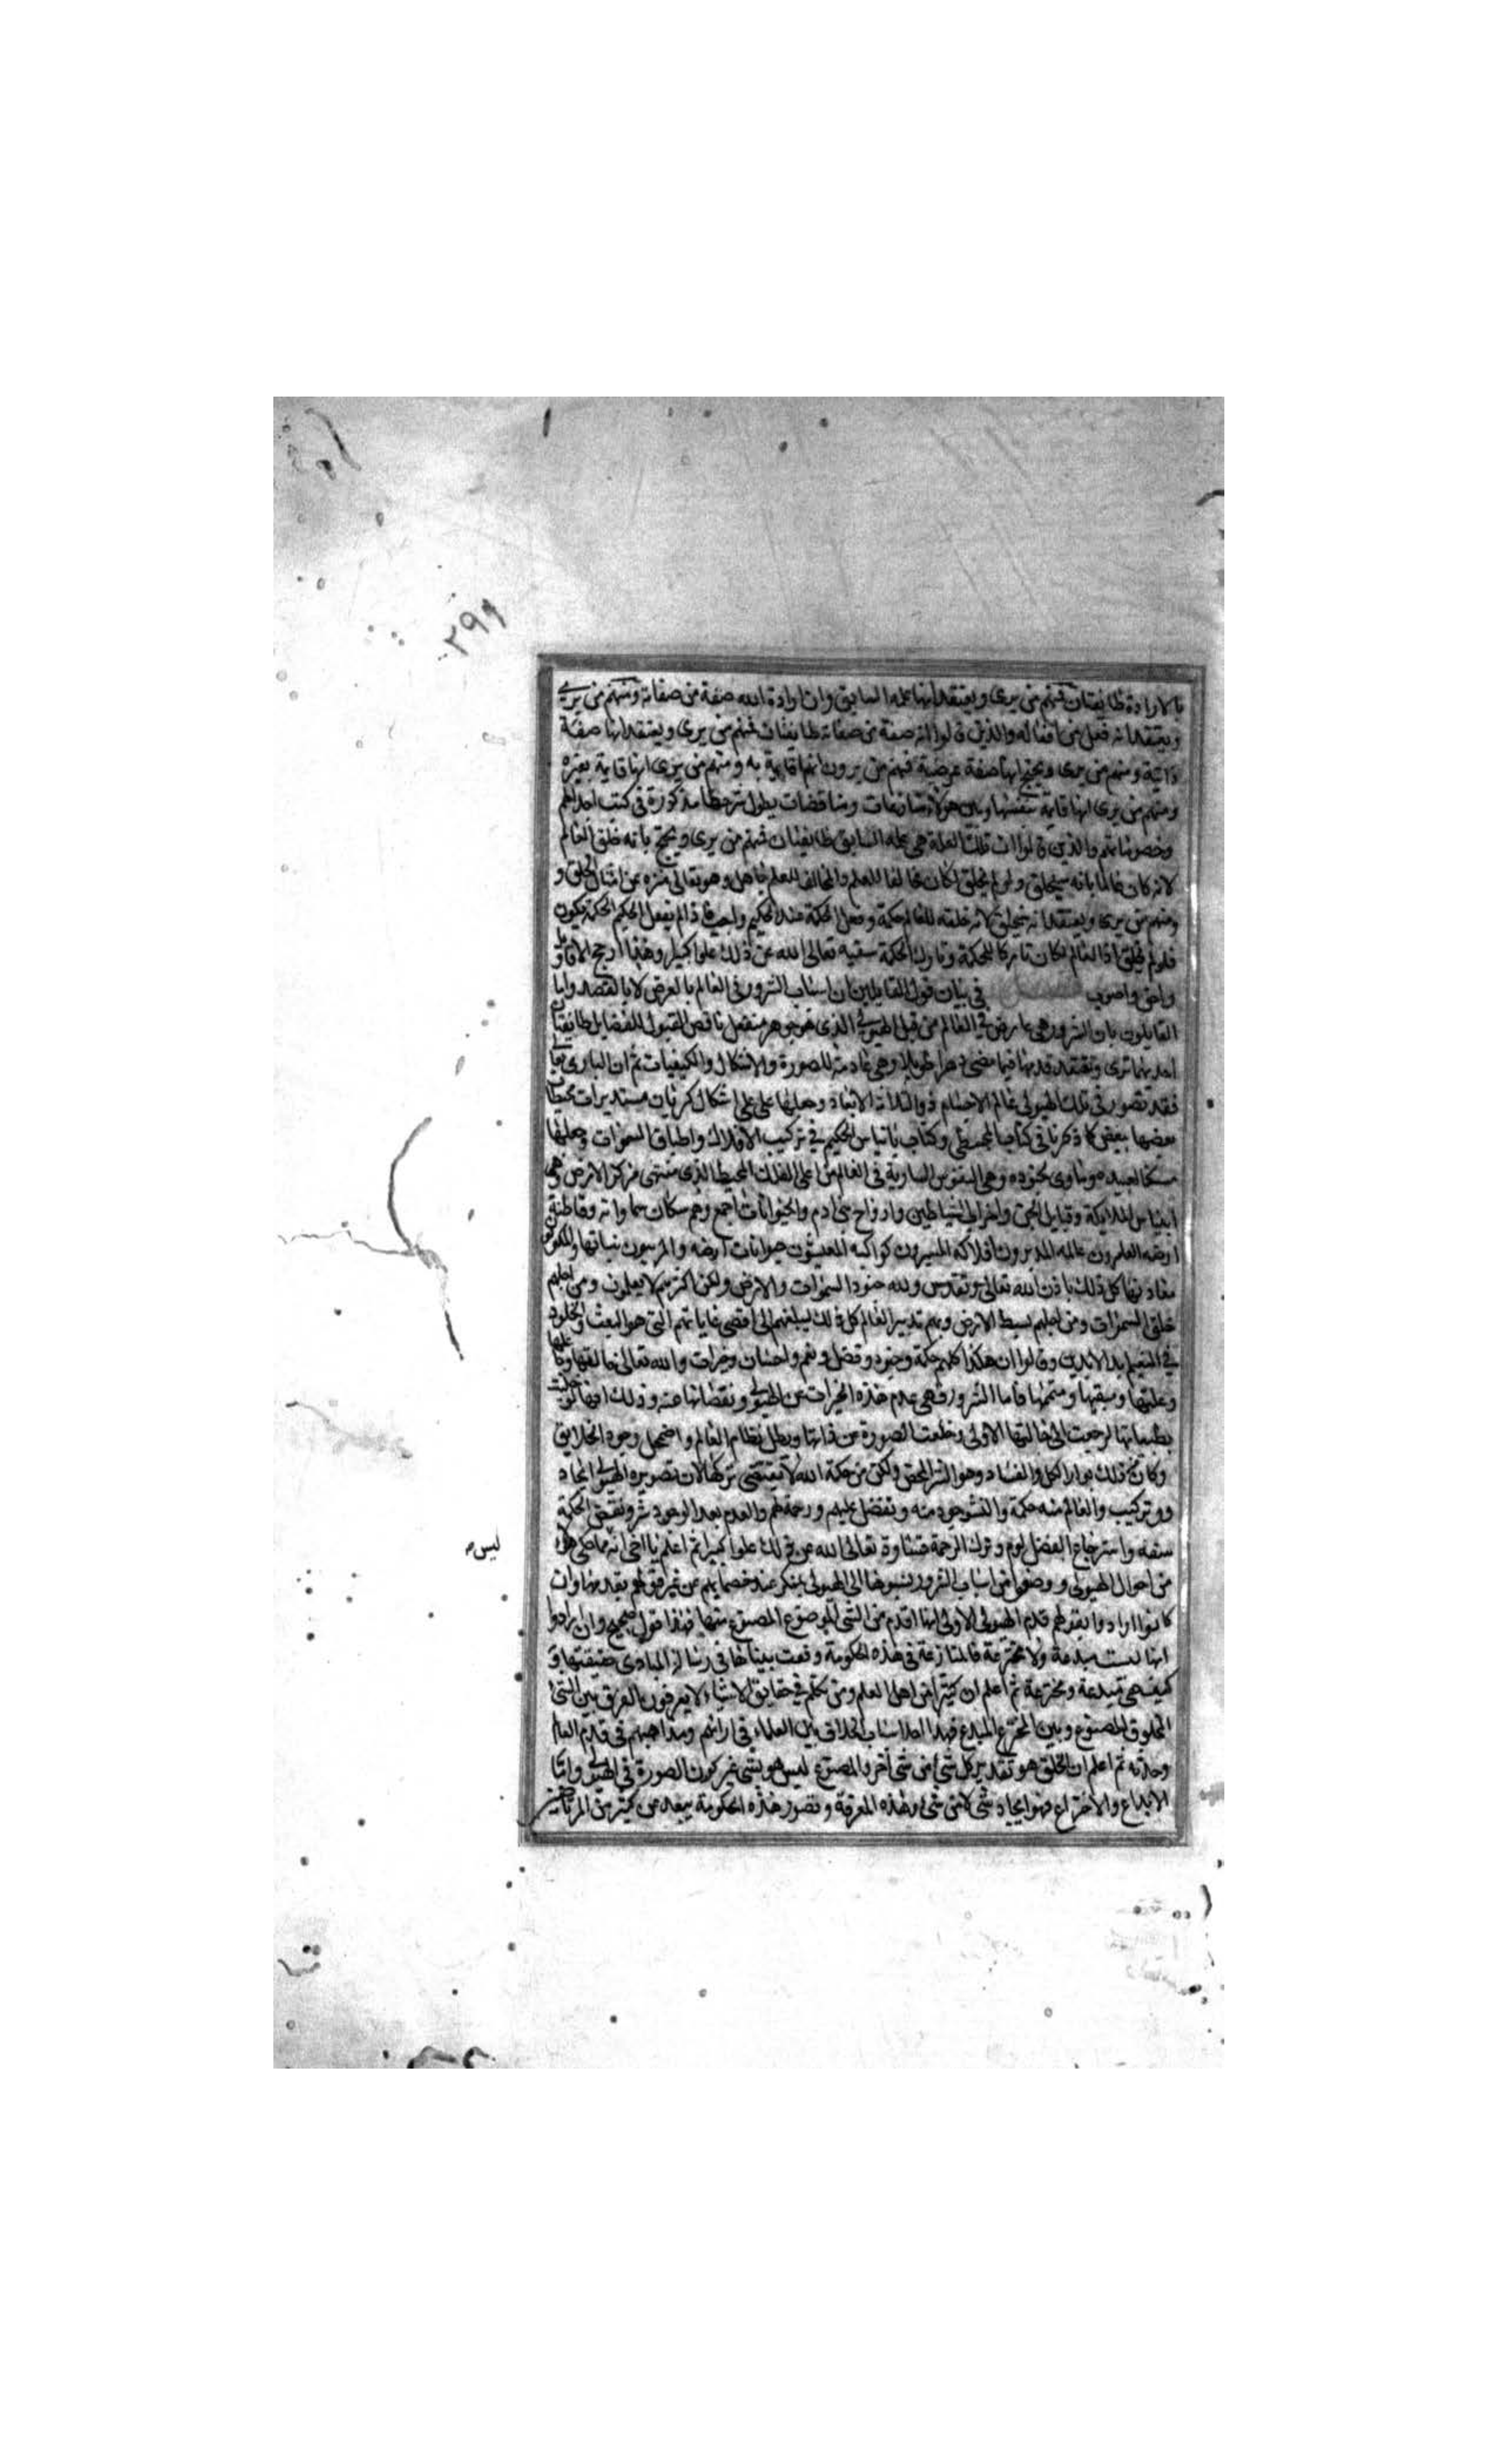 ٢٩٩
بالارادة طايفتان فمنهم من يرى ويعتقد انها علمه السابق وان ارادة الله صفة من صفاته ومنهم من يرى
ويعتقد انه فعل من افعاله والذين قالوا انه صفة من صفاته طايفتان فمنهم من يرى ويعتقد انها صفة
ذاتية ومنهم من يرى ويحتج انها صفة عرضية فمنهم من يرون انها قايمة به ومنهم من يرى انها قاية بغيره
ومنهم من يرى انها قايمة بنفسها وبين هولاء منازعات ومناقضات يطول شرحها مذكورة في كتب
وخصوماتهم والذين قالوا ان تلك العلة هي علمه السابق طايفتان فمنهم من يرى ويحتج بانه خلق العالم
لانه كان عالما بانه سيخلق ولو لم يخلق لكان مخالفا للعلم والمخالف للعلم جاهل وهو تعالى منزه عن امثال الخلق و
ومنهم من يرى ويعتقد انه يخلق لانه خلقه للعالم حكمة وفعل الحكمة عند الحكيم واجب فاذا لم يفعل الحكيم الحكمة يكون
فلو لم يخلق اذا العالم لكان تاركا للحكمة وتارك الحكمة سفيه تعالى الله عن ذلك علوا كبيرا وهذا ارجح الاقاويل
واحق واصوب فصل في بيان قول القايلين ان اسباب الشرور في العالم بالعرض لا بالقصد واما
القايلون بان الشرور هي عارض في العالم من قبل الهيولى الذي هو جوهر منفعل ناقص القبول للفضايل طايفتان
احديهما ترى وتعتقد قدمها فيما مضى دهرا طويلا وهي عادمة للصورة والاشكال والكيفيات ثم ان البارى تعالى
فقد تصور في تلك الهيولى عالم الاجسام ذو الثلاثة الابعاد وجعلها على اشكال كريات مستديرات محيطات
بعضها ببعض كما ذكرنا في كتاب المجسطي وكتاب الحكيم في تركيب الافلاك واطباق السموات وجعلها
مسكنا لعبيده وماوى لجنوده وهي النفوس السارية في العالم من اعلى الفلك المحيط الذي منتهى مركز الارض وهى
اجناس الملايكة وقبايل الجن واحزاب الشياطين وارواح بنى ادم والحيوانات اجمع وهم سكان سماواته وقاطنة
ارضه العامرون عالمه المدبرون افلاكه المسيرون كواكبه المعيشون حيوانات ارضه والمربون نباتها والمكونون
معادنها كل ذلك باذن الله تعالى وتقدس ولله جنود السموات والارض ولكن اكثرهم لا يعلمون ومن اجلهم
خلق السموات ومن اجلهم بسط الارض وبهم تدبير العالم كل ذلك ليبلغهم الى اقصى غاياتهم التى هو البعث والخلود
في النعيم ابد الابدين وقالوا ان هذا كله حكمة وجود وفضل ونعم واحسان وخيرات والله تعالى خالقها وفاعلها
وعلتها ومبقيها ومتممها فاما الشرور فهي عدم هذه الخيرات عن الهيولى ونقصانها عنه وذلك انها لو خليت
بطبيعتها لرجعت الى حالتها الاولى وخلعت الصورة عن ذاتها وبطل نظام العالم واضمحل وجود الخلايق
وكان ذلك بوار الكل والفساد وهو الشر المحض ولكن من حكمة الله لا يقتضى تركها لان تصويره الهيولى ايجاد
وو تركيب والعالم منه حكمة والنشو جود منه وتفضل عليهم ورحمة لهم والعدم بعد الوجود شر ونقض الحكمة
سفه واسترجاع الفضل لوم وترك الرحمة قساوة تعالى الله عن ذلك علوا كبيرا ثم اعلم يا اخى انه ما حكى هولاء
ليس
من احوال الهيولى ووصفوا من اسباب الشرور نسبوها الى الهيولى بمنكر عند خصمايهم عن غير قولهم بقدمها وان
كانوا ارادوا بقولهم قدم الهيولى الاولى انها اقدم من الشى الموضوع المصنوع منها فهذا قول صحيح وان ارادوا
انها ليست مبدعة ولا مخترعة فالمنازعة في هذه الحكومة وقعت بيناها في رسالة المبادى حقيقتها و
كيف هي مبدعة ومخترعة ثم اعلم ان كثيرا من اهل العلم ومن تكلم في حقايق الاشياء لا يعرفون الفرق بين الشئ
المخلوق المصنوع وبين المخترع المبدع فهذا احد اسباب الخلاف بين العلماء في ارائهم ومذاهبهم في قدم العالم
وحدثه ثم اعلم ان الخلق هو تقدير كل شئ من شئ اخر والمصنوع ليس هو بشئ غير كون الصورة في الهيولى واما
الابداع والاختراع فهو ايجاد شئ لا من شئ وهذه المعرفة وتصور هذه الحكومة يبعد عن كثير من المرتاضين